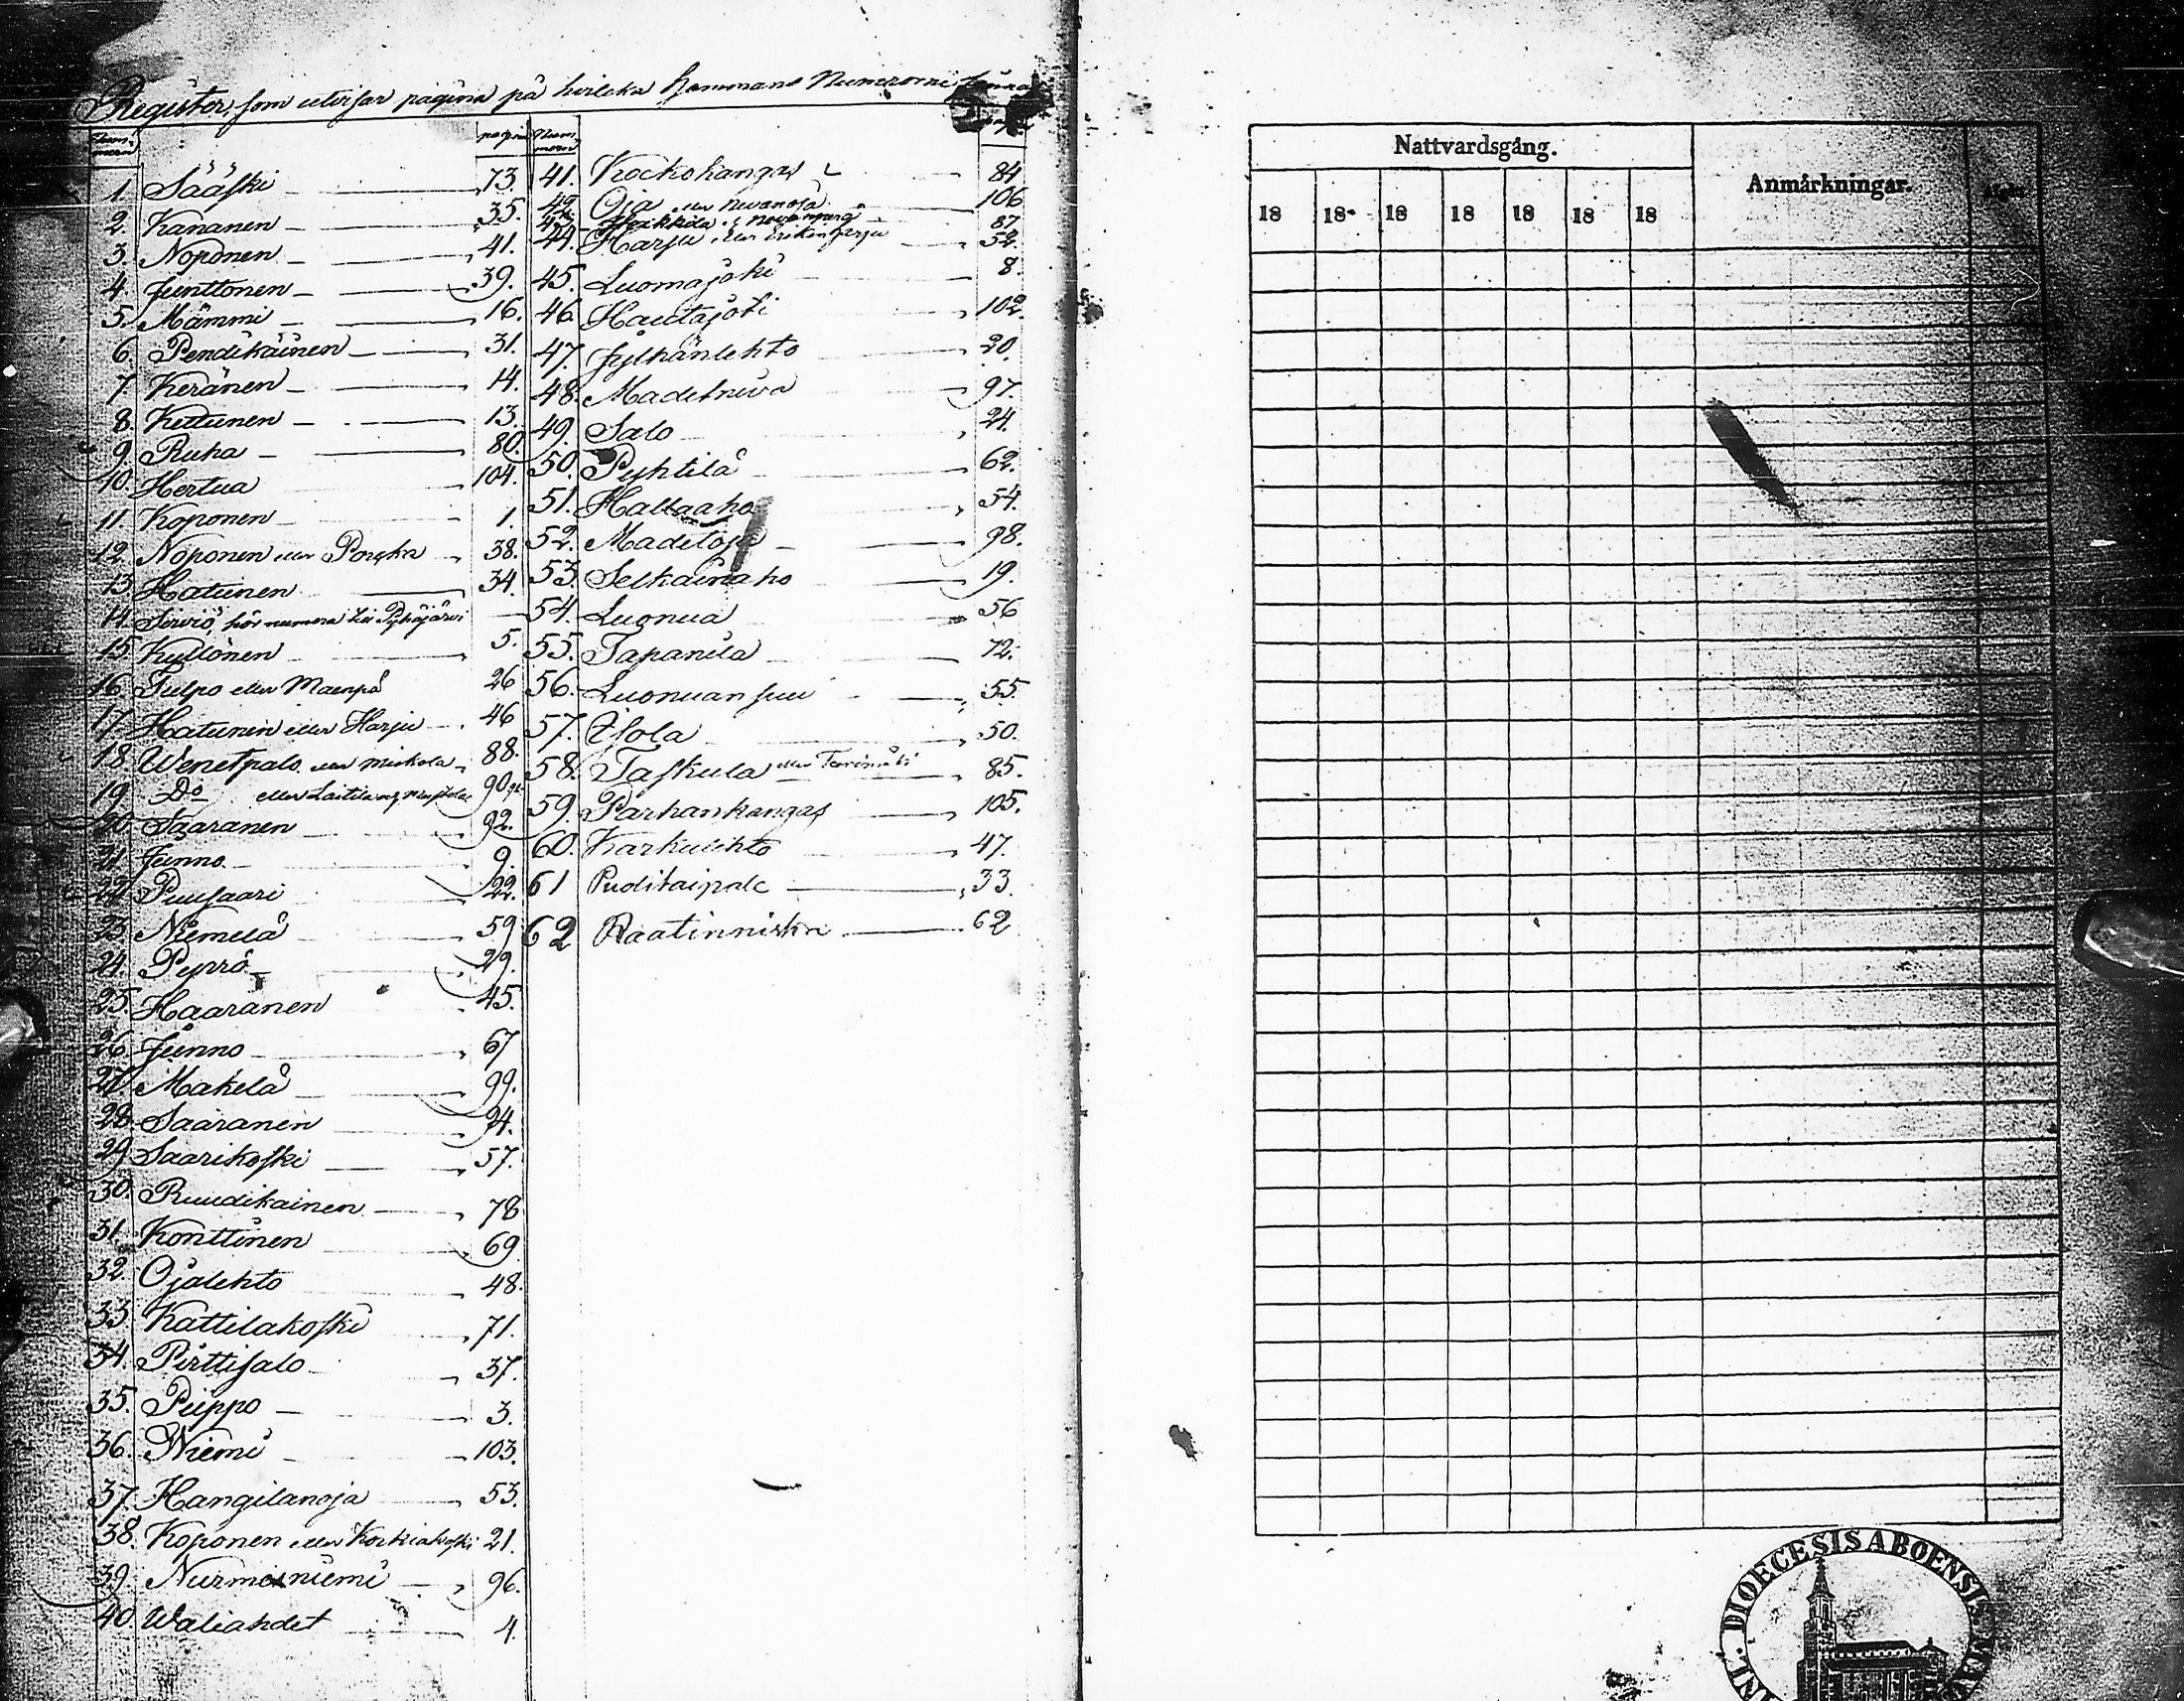 Register, som utvisar pagina på hvilcka Hemmans Numrorne finnas
Num-
mern
pagina
1. Sääski 73.
2. Kananen 35.
3. Noponen 41.
4. Junttonen 39.
5. Mämmi 16.
6. Pendikäinen 31.
7. Keränen 14.
8. Kettunen 13.
9. Ruha 80.
10. Hertua 104.
11 Koponen 1.
12. Noponen eller Poncka 38.
13. Hatunen 34.
14. Serviö, hör numera till Pyhäjärvi
15 Kyllönen 5.
16. Tulpo eller Maenpä 26
17. Hatunen eller Harju 46
18 Wenetpalo eller Miskola 88.
19 Do eller Laitila 90
20. Saaranen 92.
21 Junno 9.
22 Puusaari 22.
23. Niemelä 59
24. Pyrrö 29.
25. Haaranen 45.
26. Junno 67
27. Makelä 99.
28. Saaranen 94.
29 Saarikoski 57.
30. Ruudikainen 78
31. Konttinen 69
32. Ojalehto 48.
33 Kattilakoski 71.
34. Pirttisalo 37.
35. Piippo 3.
36. Niemi 103.
37. Hangilanoja 53.
38. Koponen eller Korkiakoski 21.
39. Nurmesniemi 96.
40 Waliahdet 4.
Num-
mern
pagina
41. Kockokangas 84
42 Oja eller Nevanoja 106
43 Heikkilä 87
44. Harju eller Erikinharju 52.
45. Luomajoki 8.
46. Hautajoki 102.
47. Jylhänlehto 20.
48. Madetneva 97.
49. Salo 24.
50. Pyhtilä 62.
51. Hallaaho 54.
52. Madetoja 98.
53. Selkäinaho 19.
54. Luonua 56
55. Tapanila 72.
56. Luonuansuu 55.
57. Isola 50.
58. Taskula eller Tervimäki 85.
59. Parhankangas 105.
60. Karkulehto 47.
61 Puditaipale 33.
62 Raatinniska 62
Nattvardsgång.
Anmärkningar.
18 18 18 18 18 18 18
DIOECESIS ABOENSIS